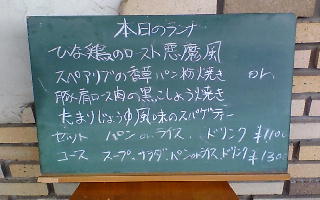 本日のランチ
ひな鶏のロースト悪魔風
スペアリブの香草パン粉焼き or
豚肩ロース肉の黒こしょう焼き
たまりじょうゆ風味のスパゲティー
セット パン or ライス、ドリンク ¥1100
コース スープ、サラダ、パン or ライス、ドリンク ¥1300